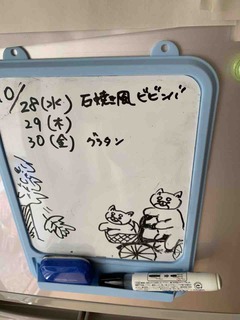 10/28(水) 石焼き風ビビンバ
29(木)
30(金) グラタン